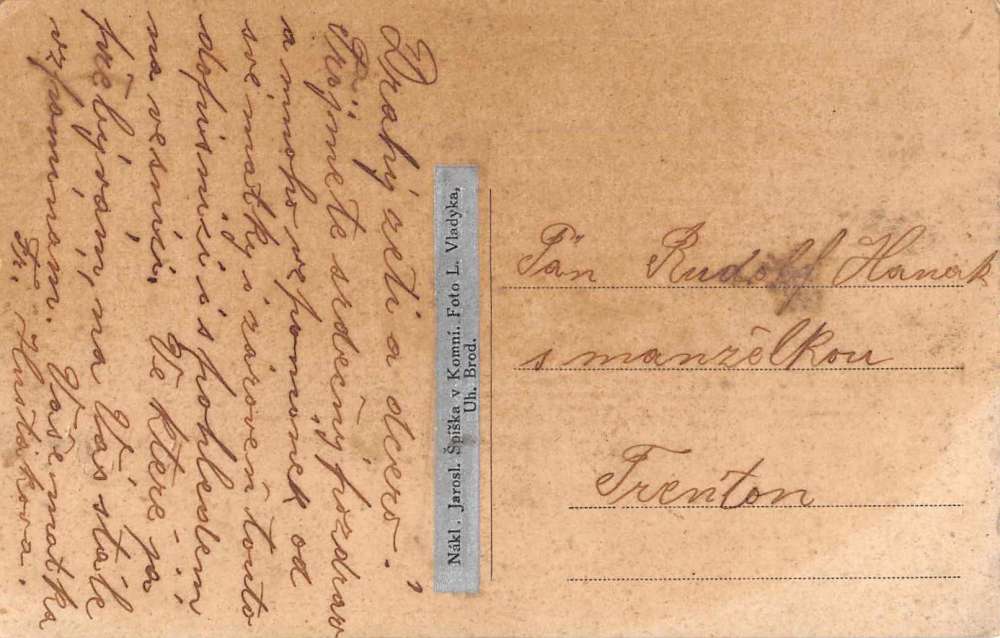 Drahý zeti a dcero!
Přijměte srdečný pozdrav
a mnoho vzpomínek od
své matky i zároveň touto
dopisnicí s pohledem
na vesnici. Ve které já
přebývám, na Vás stále
vzpomínám. Vaše matka
Fr. Husťáková.
Nákl. Jarosl. Špiška v Komni. Foto L. Vladyka,
Uh. Brod.
Pán Rudolf Hanák
s manželkou
Trenton